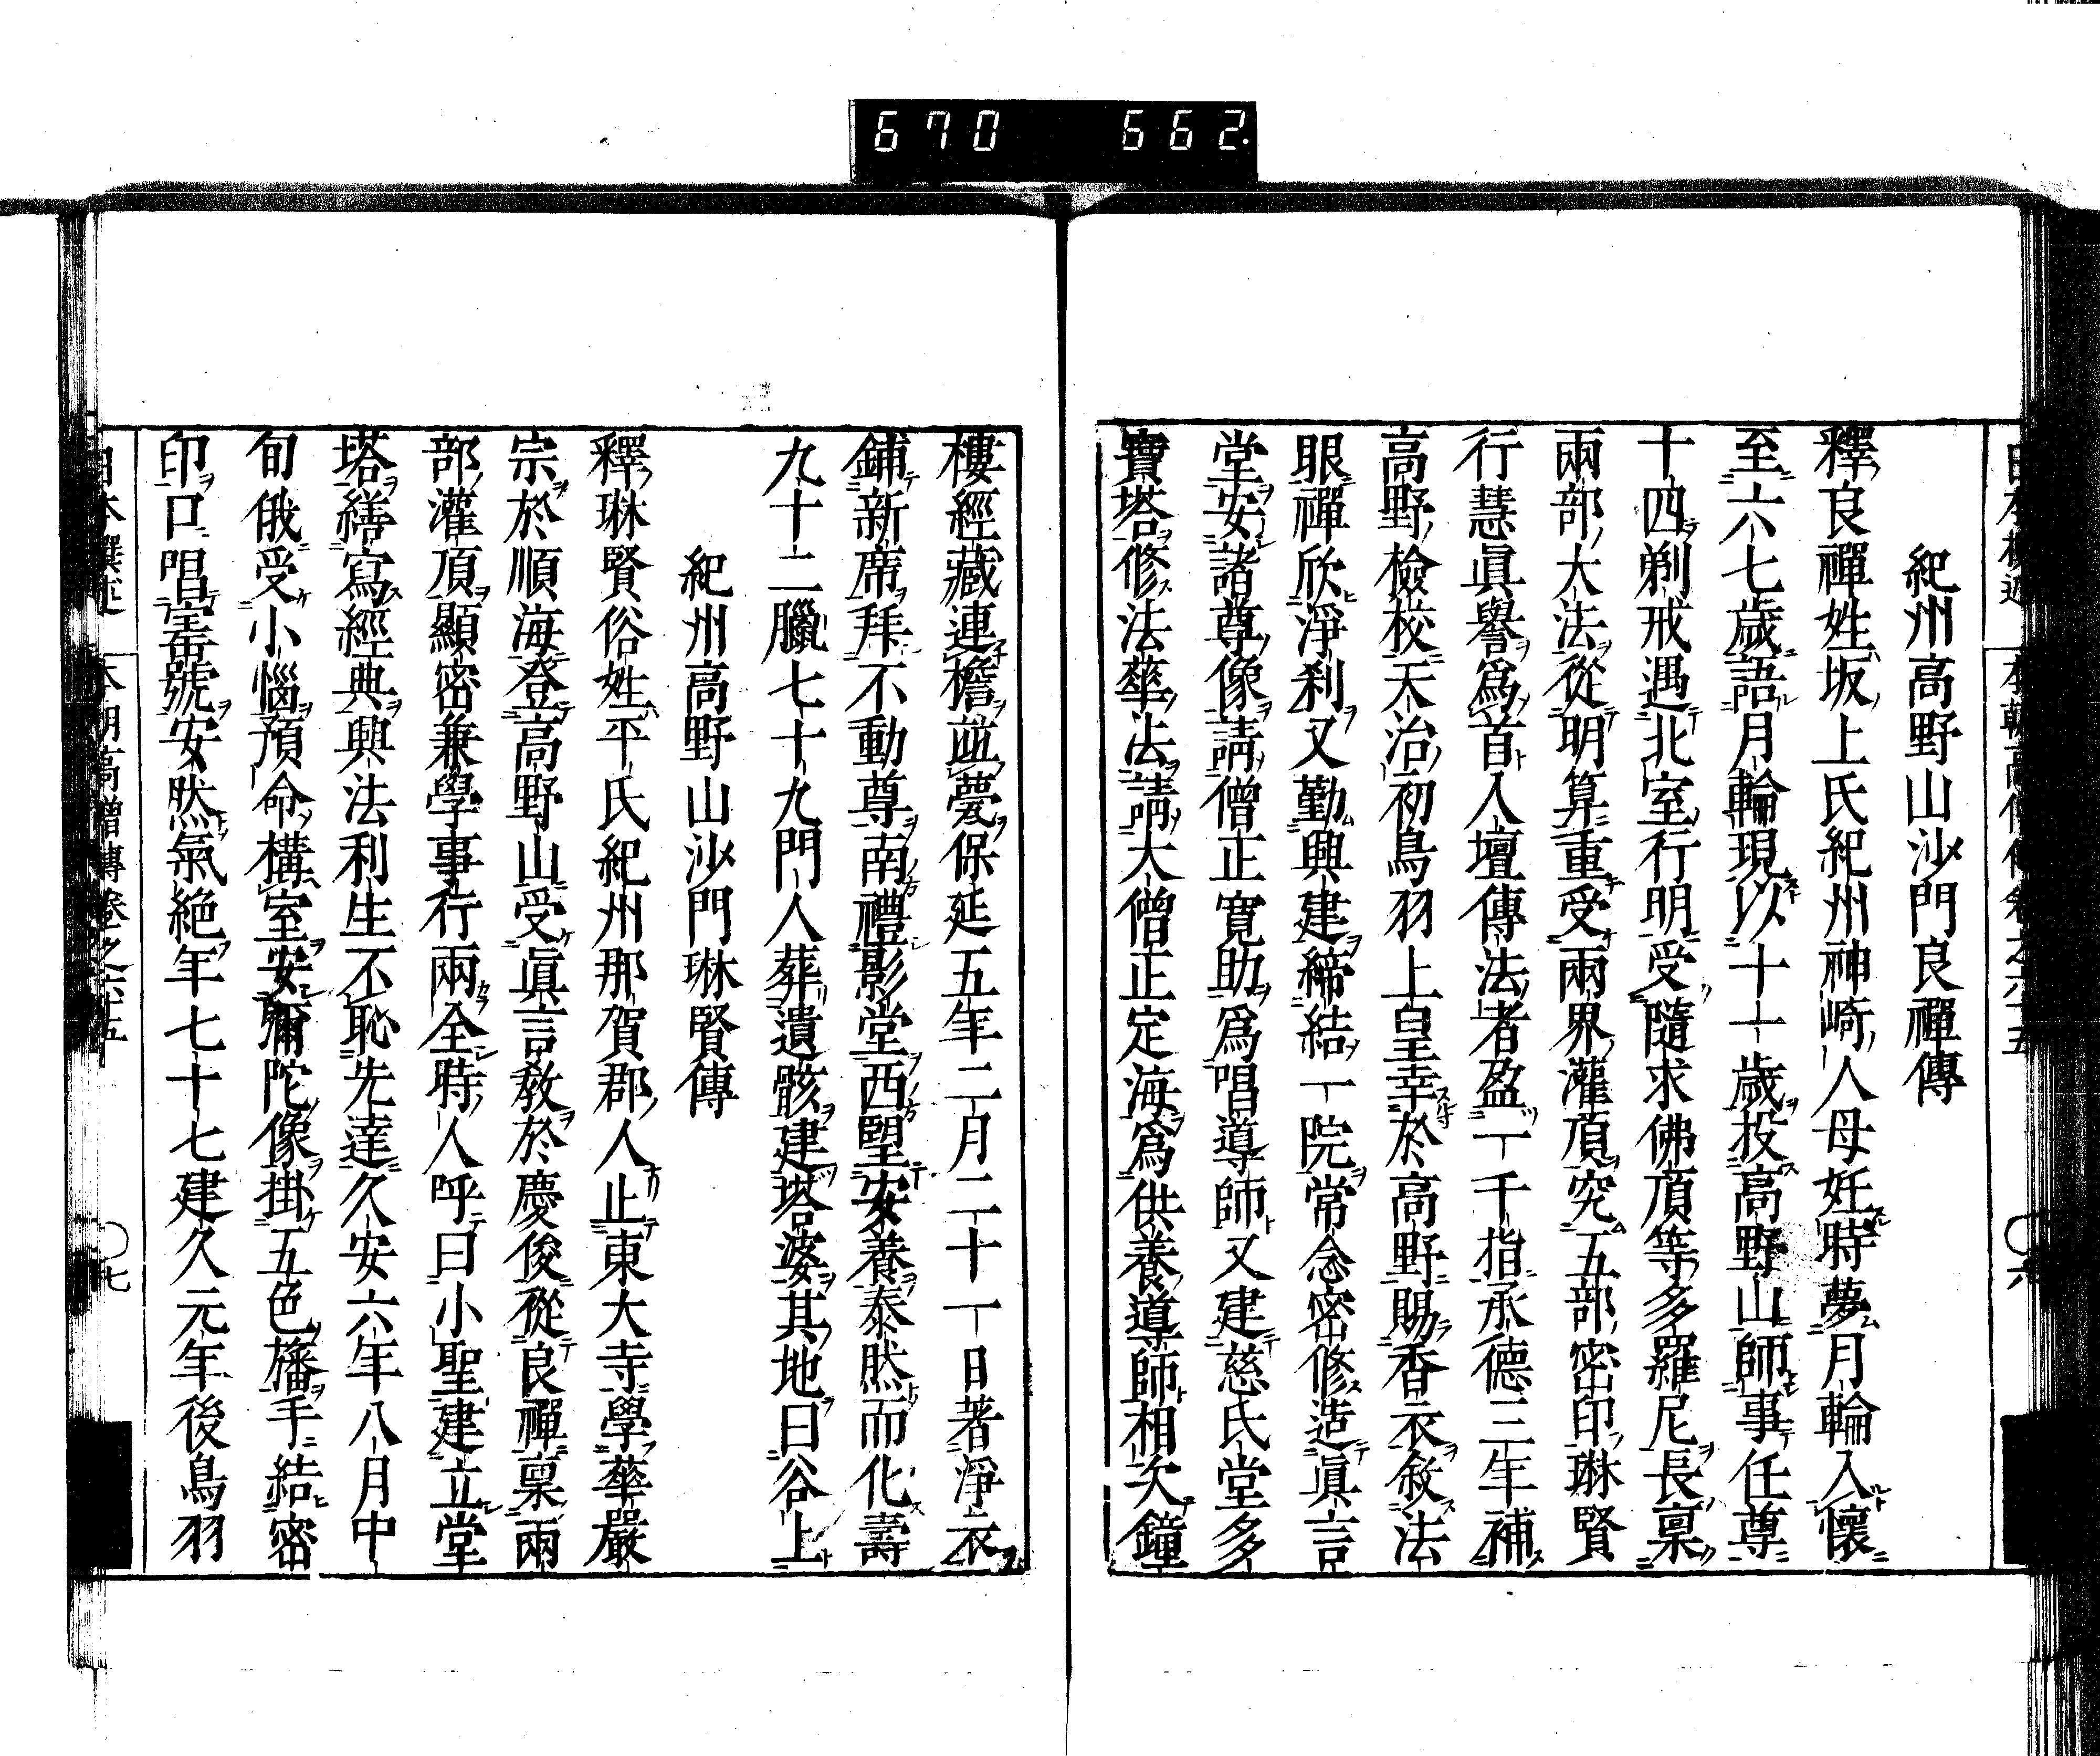 670 662
紀州高野山沙門良禪傳
釋良禪姓坂上氏紀州神崎人母妊時夢月輪入懷
至六七歲語月輪現以十一歲投高野山師事任尊
十四剃戒遇北室行明受隨求佛頂等多羅尼長稟
兩部大法從明算重受兩界灌頂究五部密印琳賢
行慧眞譽爲首入壇傳法者盈一千指承德三年補
高野檢校天治初鳥羽上皇幸於高野賜香衣敘法
眼禪欣淨刹又勤興建締結一院常念密修造眞言
堂安諸尊像請僧正寬助爲唱導師又建慈氏堂多
寶塔修法華法請大僧正定海爲供養導師相次鐘
樓經藏連檐竝甍保延五年二月二十一日著淨衣
鋪新席拜不動尊南禮影堂西望安養泰然而化壽
九十二臘七十九門人葬遺骸建塔婆其地曰谷上
紀州高野山沙門琳賢傳
釋琳賢俗姓平氏紀州那賀郡人止東大寺學華嚴
宗於順海登高野山受眞言敎於慶俊從良禪稟兩
部灌頂顯密兼學事行兩全時人呼曰小聖建立堂
塔繕寫經典興法利生不恥先達久安六年八月中
旬俄受小惱預命構室安彌陀像掛五色旛手結密
印口唱寶號安然氣絕年七十七建久元年後鳥羽
日本撰述 本朝高僧傳卷之六十五 〇七